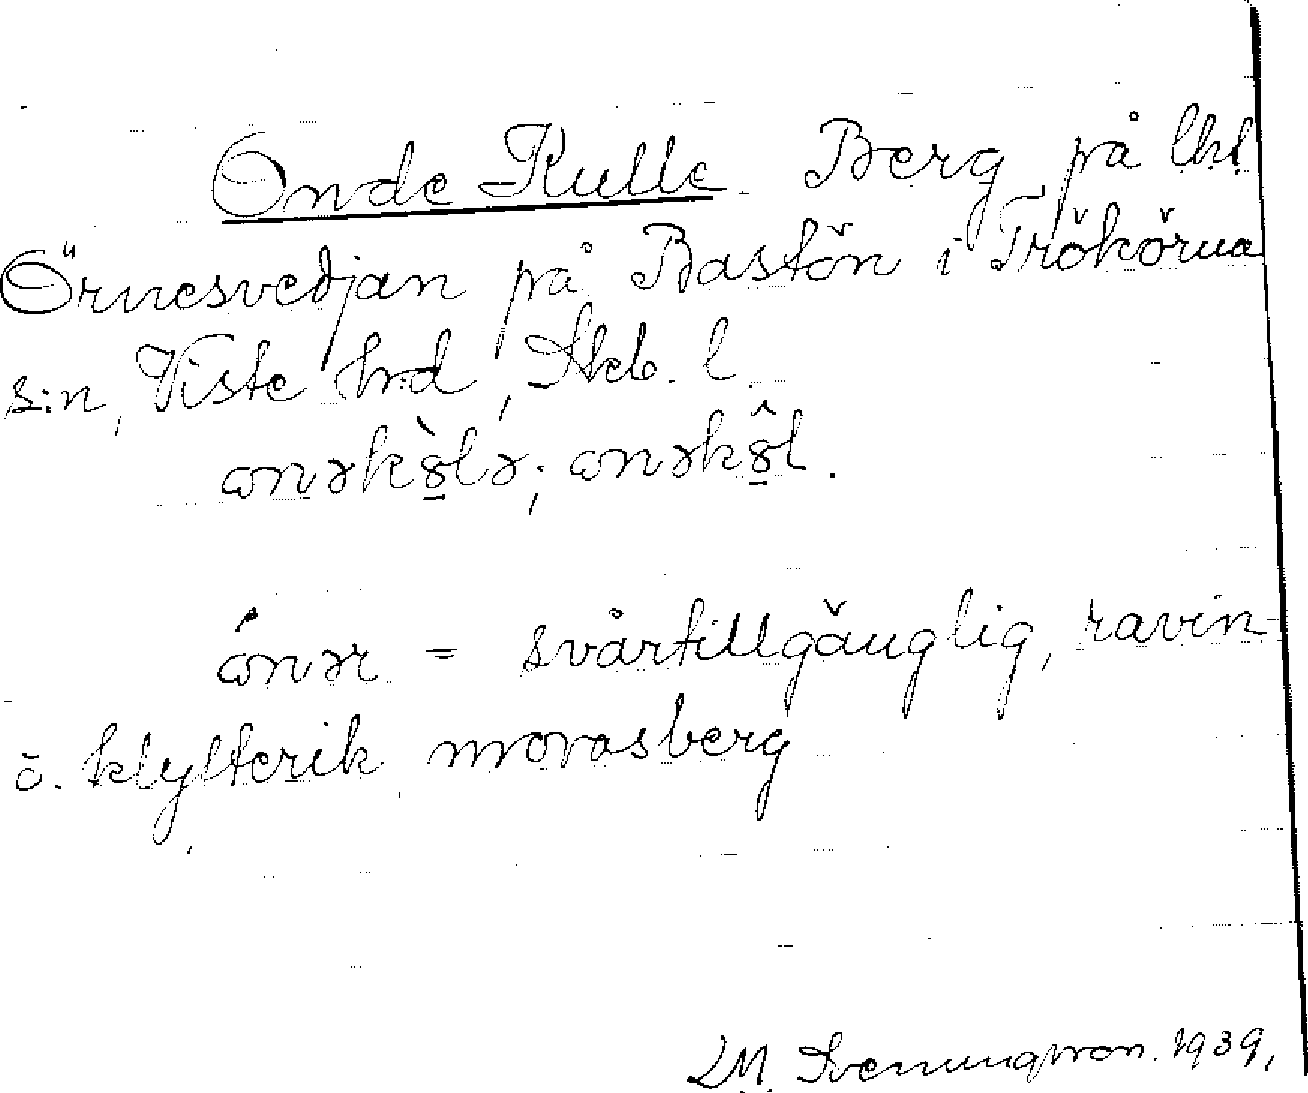 Onde Kulle. Berg på lhl
Örnesvedjan på Bastön i Trökörna
s:n, Viste hrd, Skb. l.
ωnəkə̀lə; ωnəkə̂l.
ώnər = svårtillgänglig, ravin-
o. klyfterik morasberg
SM. Svenungsson. 1939,